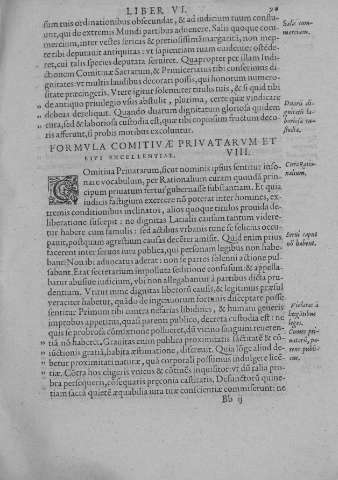 LIBER VI.
sum tuis ordinationibus obsecundat, & ad iudicium tuum constu-
unt, qui de extremis Mundi partibus aduenere. Salis quoque com-
mercium, inter vestes sericas & pretiosissimã margaritã, non inep-
te tibi deputauit antiquitas: vt sapientiam tuam euidenter ostẽde-
ret, cui talis species deputata seruiret. Quapropter per illam Indi-
ctionem Comitiuæ Sacrarum, & Primiceriatus tibi conferimus di-
gnitates: vt multis laudibus decorari possis, qui honorum numero-
sitate præcingeris. Vtere igitur solenniter titulis tuis, & si quid tibi
de antiquo priuilegio vsus abstulit, plurima, certe quæ vindicare
debeas dereliquit. Quando duarum dignitatum gloriosa quidem
cura, sed & laboriosa custodia est, quæ tibi copiosum fructum deco-
ris afferunt, si probis moribus excoluntur.
Salis com-
mercium.
Duarũ di-
gnitatũ la-
boriosa cu-
stodia.
FORMVLA COMITIVÆ PRIVATARVM ET
EIVS EXCELLENTIAE. VIII.
Comitiua Priuatarum, sicut nominis ipsius sentitur inso-
nare vocabulum, per Rationalium curam quondã prin-
cipum priuatam fertur gubernasse substantiam. Et quia
iudicis fastigium exercere nõ poterat inter homines, ex-
tremis conditionibus inclinatos, alios quoque titulos prouida de-
liberatione suscepit: no dignitas Latialis causam tantùm videre-
tur habere cum famulis: sed actibus vrbanis tunc se felicius occu-
pauit, postquam agrestium causas decẽter amisit. Quid enim prius
facerent inter seruos iura publica, qui personam legibus non habe-
bant? Non ibi aduocatus aderat: non se partes solenni actione pul-
sabant. Erat secretarium impolluta seditione confusum, & appella-
batur abusiue iudicium, vbi non allegabantur à partibus dicta pru-
dentium. Vtitur nunc dignitas liberorũ causis, & legitimus præsul
veraciter habetur, quãdo de ingenuorum fortunis disceptare posse
sentitur. Primùm tibi contra nefarias libidines, & humani generis
improbos appetitus, quasi parenti publico, decreta custodia est: ne
quis se probrosa cõmixtione pollueret, dũ vicino sanguini reueren-
tiã nõ haberet. Grauitas enim publica proximitatis sanctitatẽ & cõ-
iũctionis gratiã, habita æstimatione, discreuit. Quia lõge aliud de-
betur proximitati naturæ, quã corporali possumus indulgere licẽ-
tiæ. Cõtra hos eligeris vnicus & cõtinẽs inquisitor: vt dũ talia pro-
bra persequeris, cõsequaris præconia castitatis. Defunctorũ quine-
tiam sacra quietẽ æquabilia iura tuæ conscientiæ commiserunt: ne
Rationa-
lium.
Serui caput
nõ habent.
Comes pri-
uatarũ, pa-
rens publi-
cus.
Bb ij